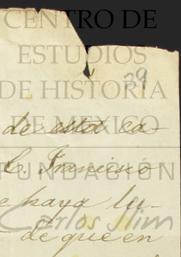 CENTRO DE
ESTUDIOS
DE HISTORIA
29
DE MÉXICO
de esta ca-
C. Francisco
FUNDACIÓN
e haya lu-
Carlos Slim
de que en